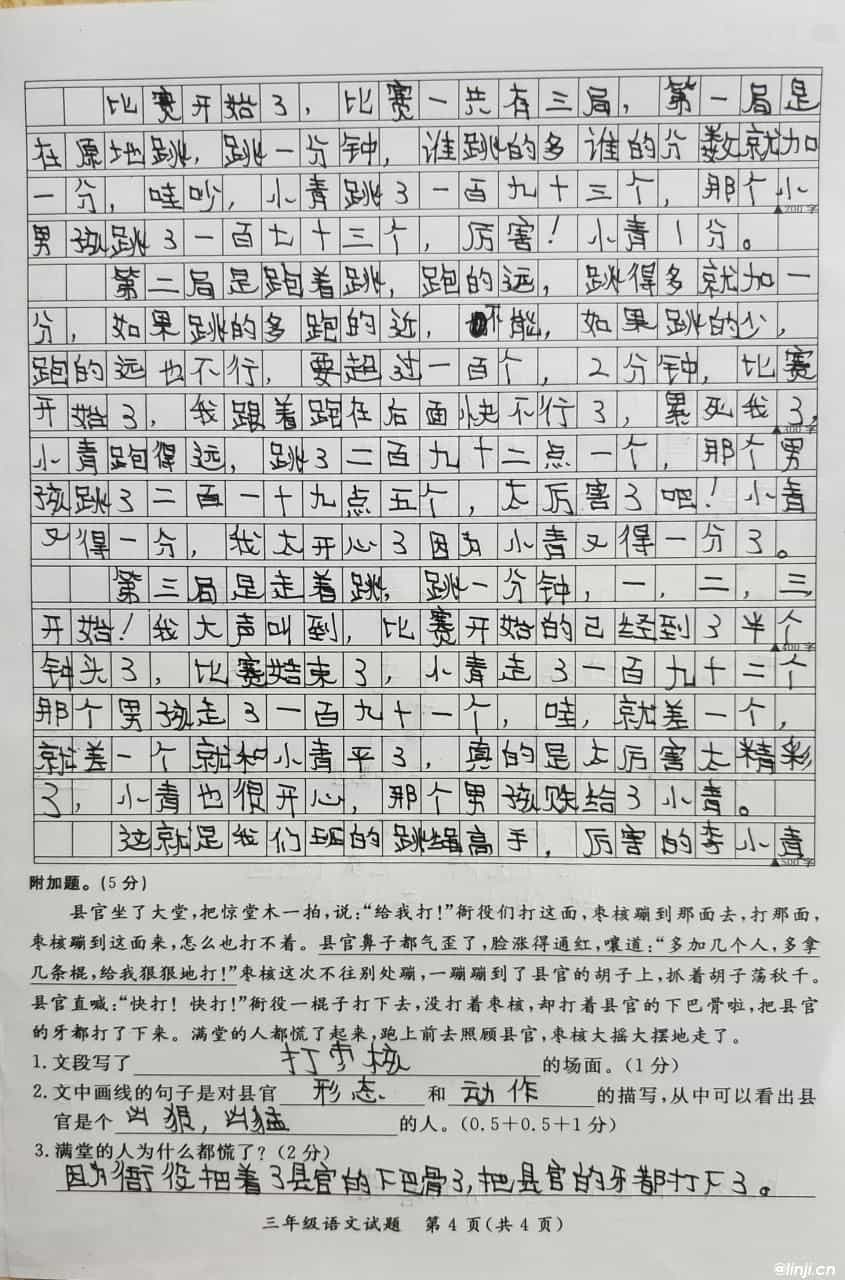 比赛开始了，比赛一共有三局，第一局是
在原地跳，跳一分钟，谁跳的多谁的分数就加
一分，哇吵，小青跳了一百九十三个，那个小
▲200字
男孩跳了一百七十三个，厉害！小青1分。
第二局是跑着跳，跑的远，跳得多就加一
分，如果跳的多跑的近，不能，如果跳的少，
跑的远也不行，要超过一百个，2分钟，比赛
开始了，我跟着跑在后面快不行了，累死我了，
▲300字
小青跑得远，跳了二百九十二点一个，那个男
孩跳了二百一十九点五个，太厉害了吧！小青
又得一分，我太开心了因为小青又得一分了。
第三局是走着跳，跳一分钟，一，二，三，
开始！我大声叫到，比赛开始的已经到了半个
▲400字
钟头了，比赛结束了，小青走了一百九十二个
那个男孩走了一百九十一个，哇，就差一个，
就差一个就和小青平了，真的是太厉害太精彩
了，小青也很开心，那个男孩败给了小青。
这就是我们班的跳绳高手，厉害的李小青
▲500字
附加题。(5分)
县官坐了大堂，把惊堂木一拍，说：“给我打！”衙役们打这面，枣核蹦到那面去，打那面，
枣核蹦到这面来，怎么也打不着。县官鼻子都气歪了，脸涨得通红，嚷道：“多加几个人，多拿
几条棍，给我狠狠地打！”枣核这次不往别处蹦，一蹦蹦到了县官的胡子上，抓着胡子荡秋千。
县官直喊：“快打！快打！”衙役一棍子打下去，没打着枣核，却打着县官的下巴骨啦，把县官
的牙都打了下来。满堂的人都慌了起来，跑上前去照顾县官，枣核大摇大摆地走了。
1. 文段写了 打枣核 的场面。(1分)
2. 文中画线的句子是对县官 形态 和 动作 的描写，从中可以看出县
官是个 凶狠，凶猛 的人。(0.5+0.5+1分)
3. 满堂的人为什么都慌了？(2分)
因为衙役把着了县官的下巴骨了，把县官的牙都打下了。
三年级语文试题 第4页(共4页)
@linji.cn